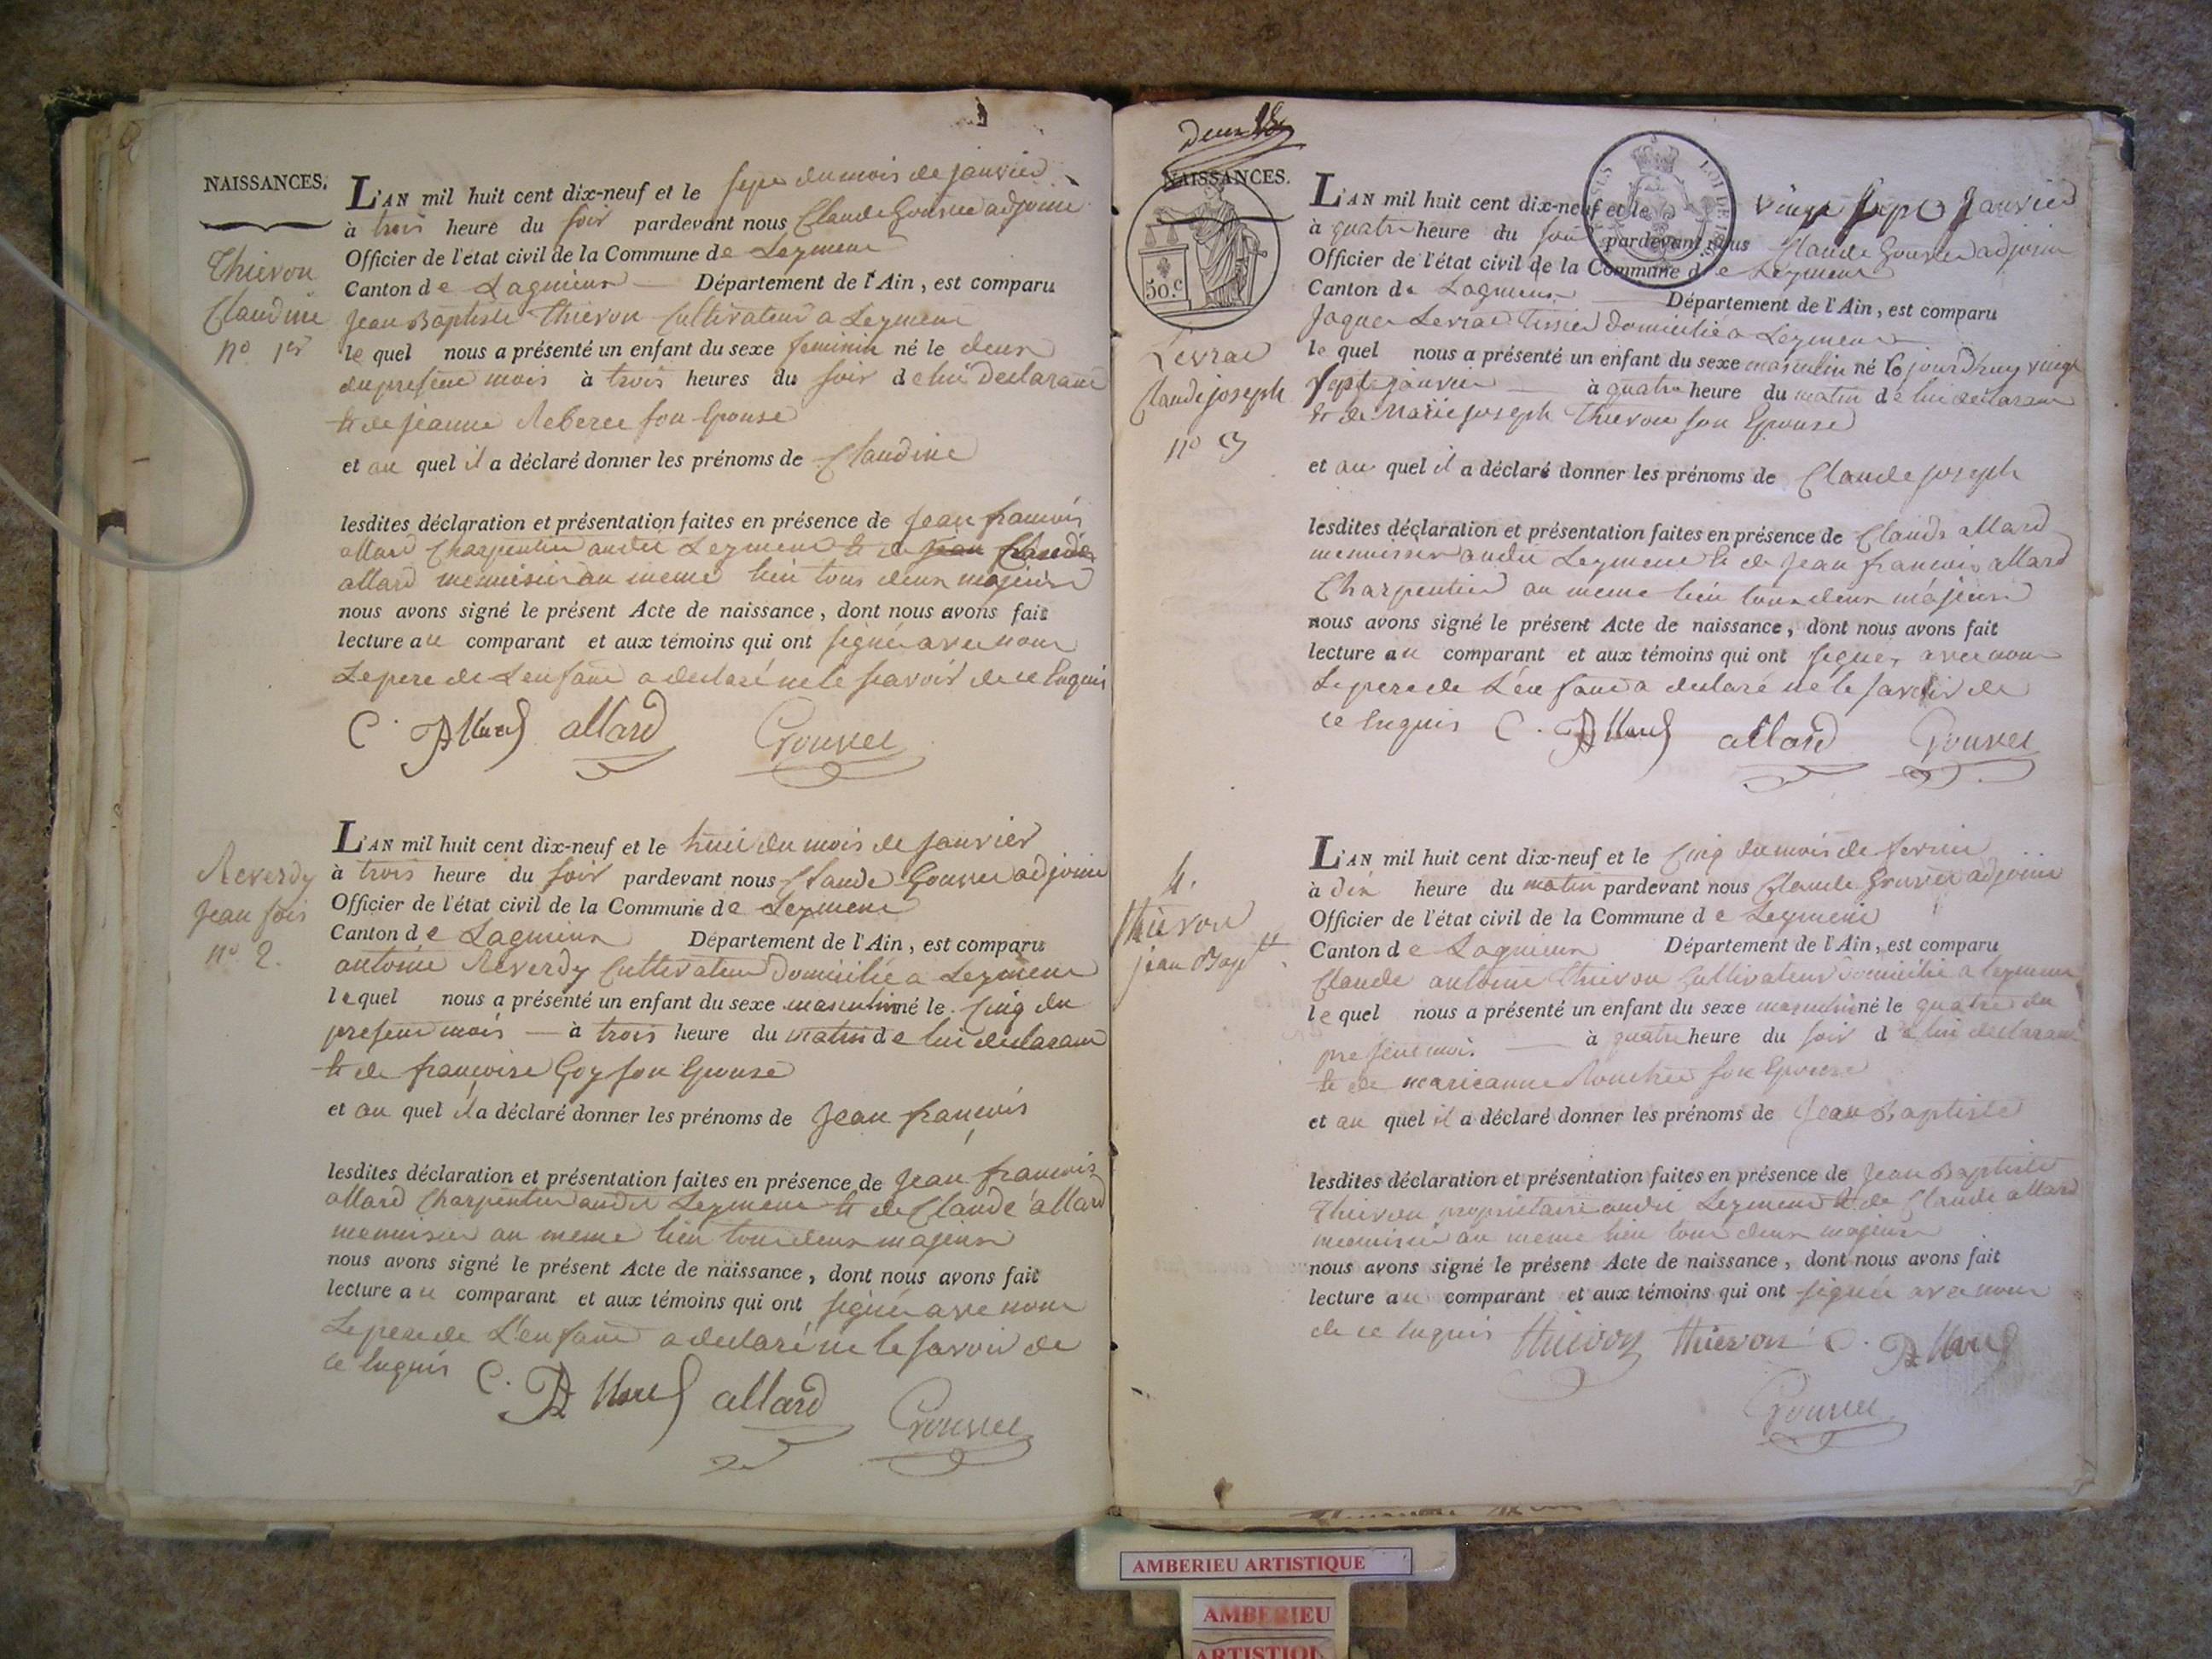 NAISSANCES.
Thievon
Claudine
no. 1er
L'AN mil huit cent dix-neuf et le sept du mois de janvier
à trois heure du soir pardevant nous Claude Gouvet adjoint
Officier de l'état civil de la Commune de Leyment
Canton de Lagnieux Département de l'Ain, est comparu
Jean Baptiste Thievon Cultivateur a Leyment
lequel nous a présenté un enfant du sexe feminin né le deux
du present mois à trois heures du soir de lui declarant
et de jeanne son Epouse
et au quel il a déclaré donner les prénoms de Claudine
lesdites déclaration et présentation faites en présence de Jean francois
allard Charpentier audit Leyment et de Jean Claude
allard menuisier au meme lieu tous deux majeurs
nous avons signé le présent Acte de naissance, dont nous avons fait
lecture au comparant et aux témoins qui ont signé avec nous
Le pere de L'enfant a declaré ne le savoir de ce Enquis
C. Allard allard Gouvet
Reverdy
Jean fois
no. 2.
L'AN mil huit cent dix-neuf et le huit du mois de janvier
à trois heure du soir pardevant nous Claude Gouvet adjoint
Officier de l'état civil de la Commune de Leyment
Canton de Lagnieux Département de l'Ain, est comparu
antoine Reverdy Cultivateur Domicilié a Leyment
lequel nous a présenté un enfant du sexe masculin né le cinq du
present mois — à trois heure du matin de lui declarant
et de françoise Goy son Epouse
et au quel il a déclaré donner les prénoms de Jean francois
lesdites déclaration et présentation faites en présence de Jean francois
allard Charpentier audit Leyment et de Claude allard
menuisier au meme lieu tous deux majeurs
nous avons signé le présent Acte de naissance, dont nous avons fait
lecture au comparant et aux témoins qui ont signé avec nous
Le pere de L'enfant a declaré ne le savoir de
ce Enquis C. Allard allard Gouvet
Deux
NAISSANCES.
50.c
LOI DE
Levrat
Claude joseph
no 3
L'AN mil huit cent dix-neuf et le vingt sept Janvier
à quatre heure du soir pardevant nous Claude Gouvet adjoint
Officier de l'état civil de la Commune de Leyment
Canton de Lagnieux Département de l'Ain, est comparu
Jaques Levrat tissier Domicilié a Leyment
lequel nous a présenté un enfant du sexe masculin né le jourd'huy vingt
sept janvier — à quatre heure du matin de lui declarant
et de Marie joseph Thievon son Epouse
et au quel il a déclaré donner les prénoms de Claude joseph
lesdites déclaration et présentation faites en présence de Claude allard
menuisier audit Leyment et de Jean francois allard
Charpentier au meme lieu tous deux majeurs
nous avons signé le présent Acte de naissance, dont nous avons fait
lecture au comparant et aux témoins qui ont signer avec nous
Le pere de L'enfant a declaré ne le savoir de
ce Enquis C. Allard allard Gouvet
4.
thievon
jean Bapte.
L'AN mil huit cent dix-neuf et le cinq du mois de fevrier
à dix heure du matin pardevant nous Claude Gouvet adjoint
Officier de l'état civil de la Commune de Leyment
Canton de Lagnieux Département de l'Ain, est comparu
Claude antoine Thievon Cultivateur Domicilié a leyment
lequel nous a présenté un enfant du sexe masculin né le quatre du
present mois — à quatre heure du soir de lui declarant
et de marieanne son Epouse
et au quel il a déclaré donner les prénoms de Jean Baptiste
lesdites déclaration et présentation faites en présence de Jean Baptiste
Thievon proprietaire audit Leyment et de Claude allard
menuisier au meme lieu tous deux majeurs
nous avons signé le présent Acte de naissance, dont nous avons fait
lecture au comparant et aux témoins qui ont signé avec nous
de ce Enquis thievon thievon C. Allard
Gouvet
AMBERIEU ARTISTIQUE
AMBERIEU
ARTISTIQU